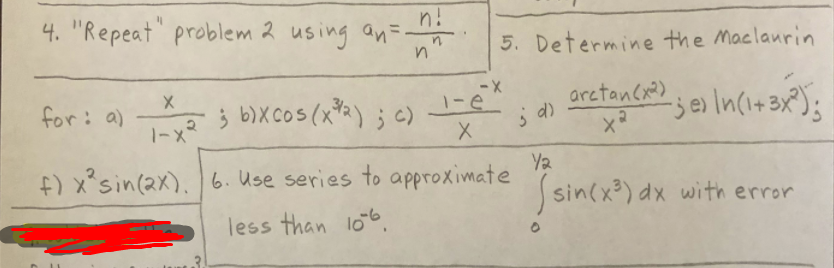 4. "Repeat" problem 2 using aₙ = n!/nⁿ.
5. Determine the Maclaurin
for: a) x/(1-x²) ; b) x cos(x^(3/2)) ; c) (1-e^(-x))/x ; d) arctan(x²)/x² ; e) ln(1+3x²);
f) x² sin(2x).
6. Use series to approximate ∫₀^(1/2) sin(x³) dx with error
less than 10⁻⁶.